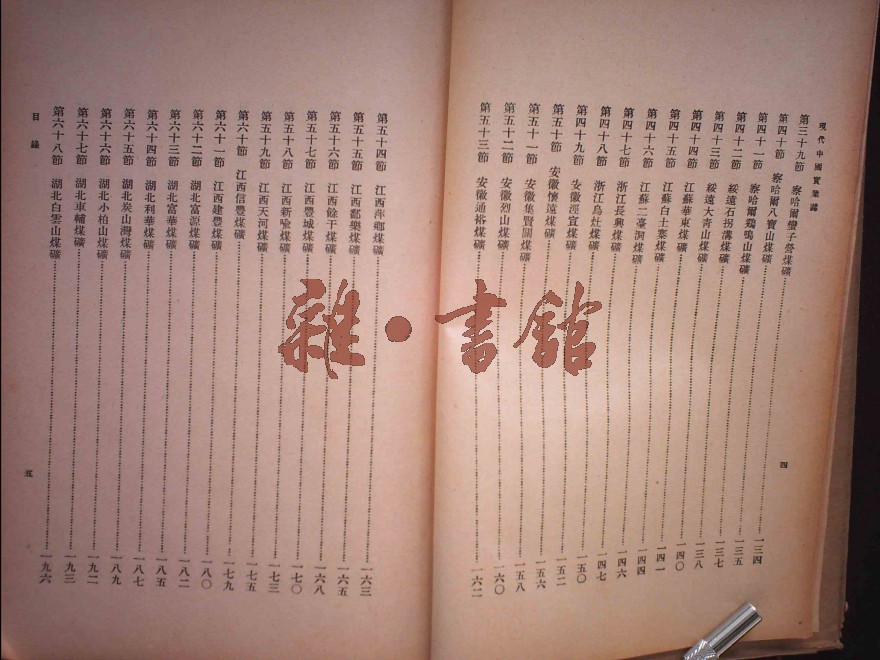 現代中國實業誌
第三十九節 察哈爾蠻子營煤礦 一三四
第四十節 察哈爾八寶山煤礦 一三五
第四十一節 察哈爾鷄鳴山煤礦 一三七
第四十二節 綏遠石拐溝煤礦 一三八
第四十三節 綏遠大靑山煤礦 一四〇
第四十四節 江蘇華東煤礦 一四一
第四十五節 江蘇白土寨煤礦 一四四
第四十六節 江蘇二臺洞煤礦 一四六
第四十七節 浙江長興煤礦 一四七
第四十八節 浙江烏灶煤礦 一五〇
第四十九節 安徽涇宣煤礦 一五二
第五十節 安徽懷遠煤礦 一五六
第五十一節 安徽集賢關煤礦 一五八
第五十二節 安徽烈山煤礦 一六〇
第五十三節 安徽通裕煤礦 一六二
四
第五十四節 江西萍鄉煤礦 一六三
第五十五節 江西鄱樂煤礦 一六五
第五十六節 江西餘干煤礦 一六八
第五十七節 江西豐城煤礦 一七〇
第五十八節 江西新喩煤礦 一七三
第五十九節 江西天河煤礦 一七五
第六十節 江西信豐煤礦 一七九
第六十一節 江西建豐煤礦 一八〇
第六十二節 湖北富源煤礦 一八二
第六十三節 湖北富華煤礦 一八五
第六十四節 湖北利華煤礦 一八七
第六十五節 湖北炭山灣煤礦 一八九
第六十六節 湖北小柏山煤礦 一九二
第六十七節 湖北車輔煤礦 一九三
第六十八節 湖北白雲山煤礦 一九六
目錄
五
雜·書館